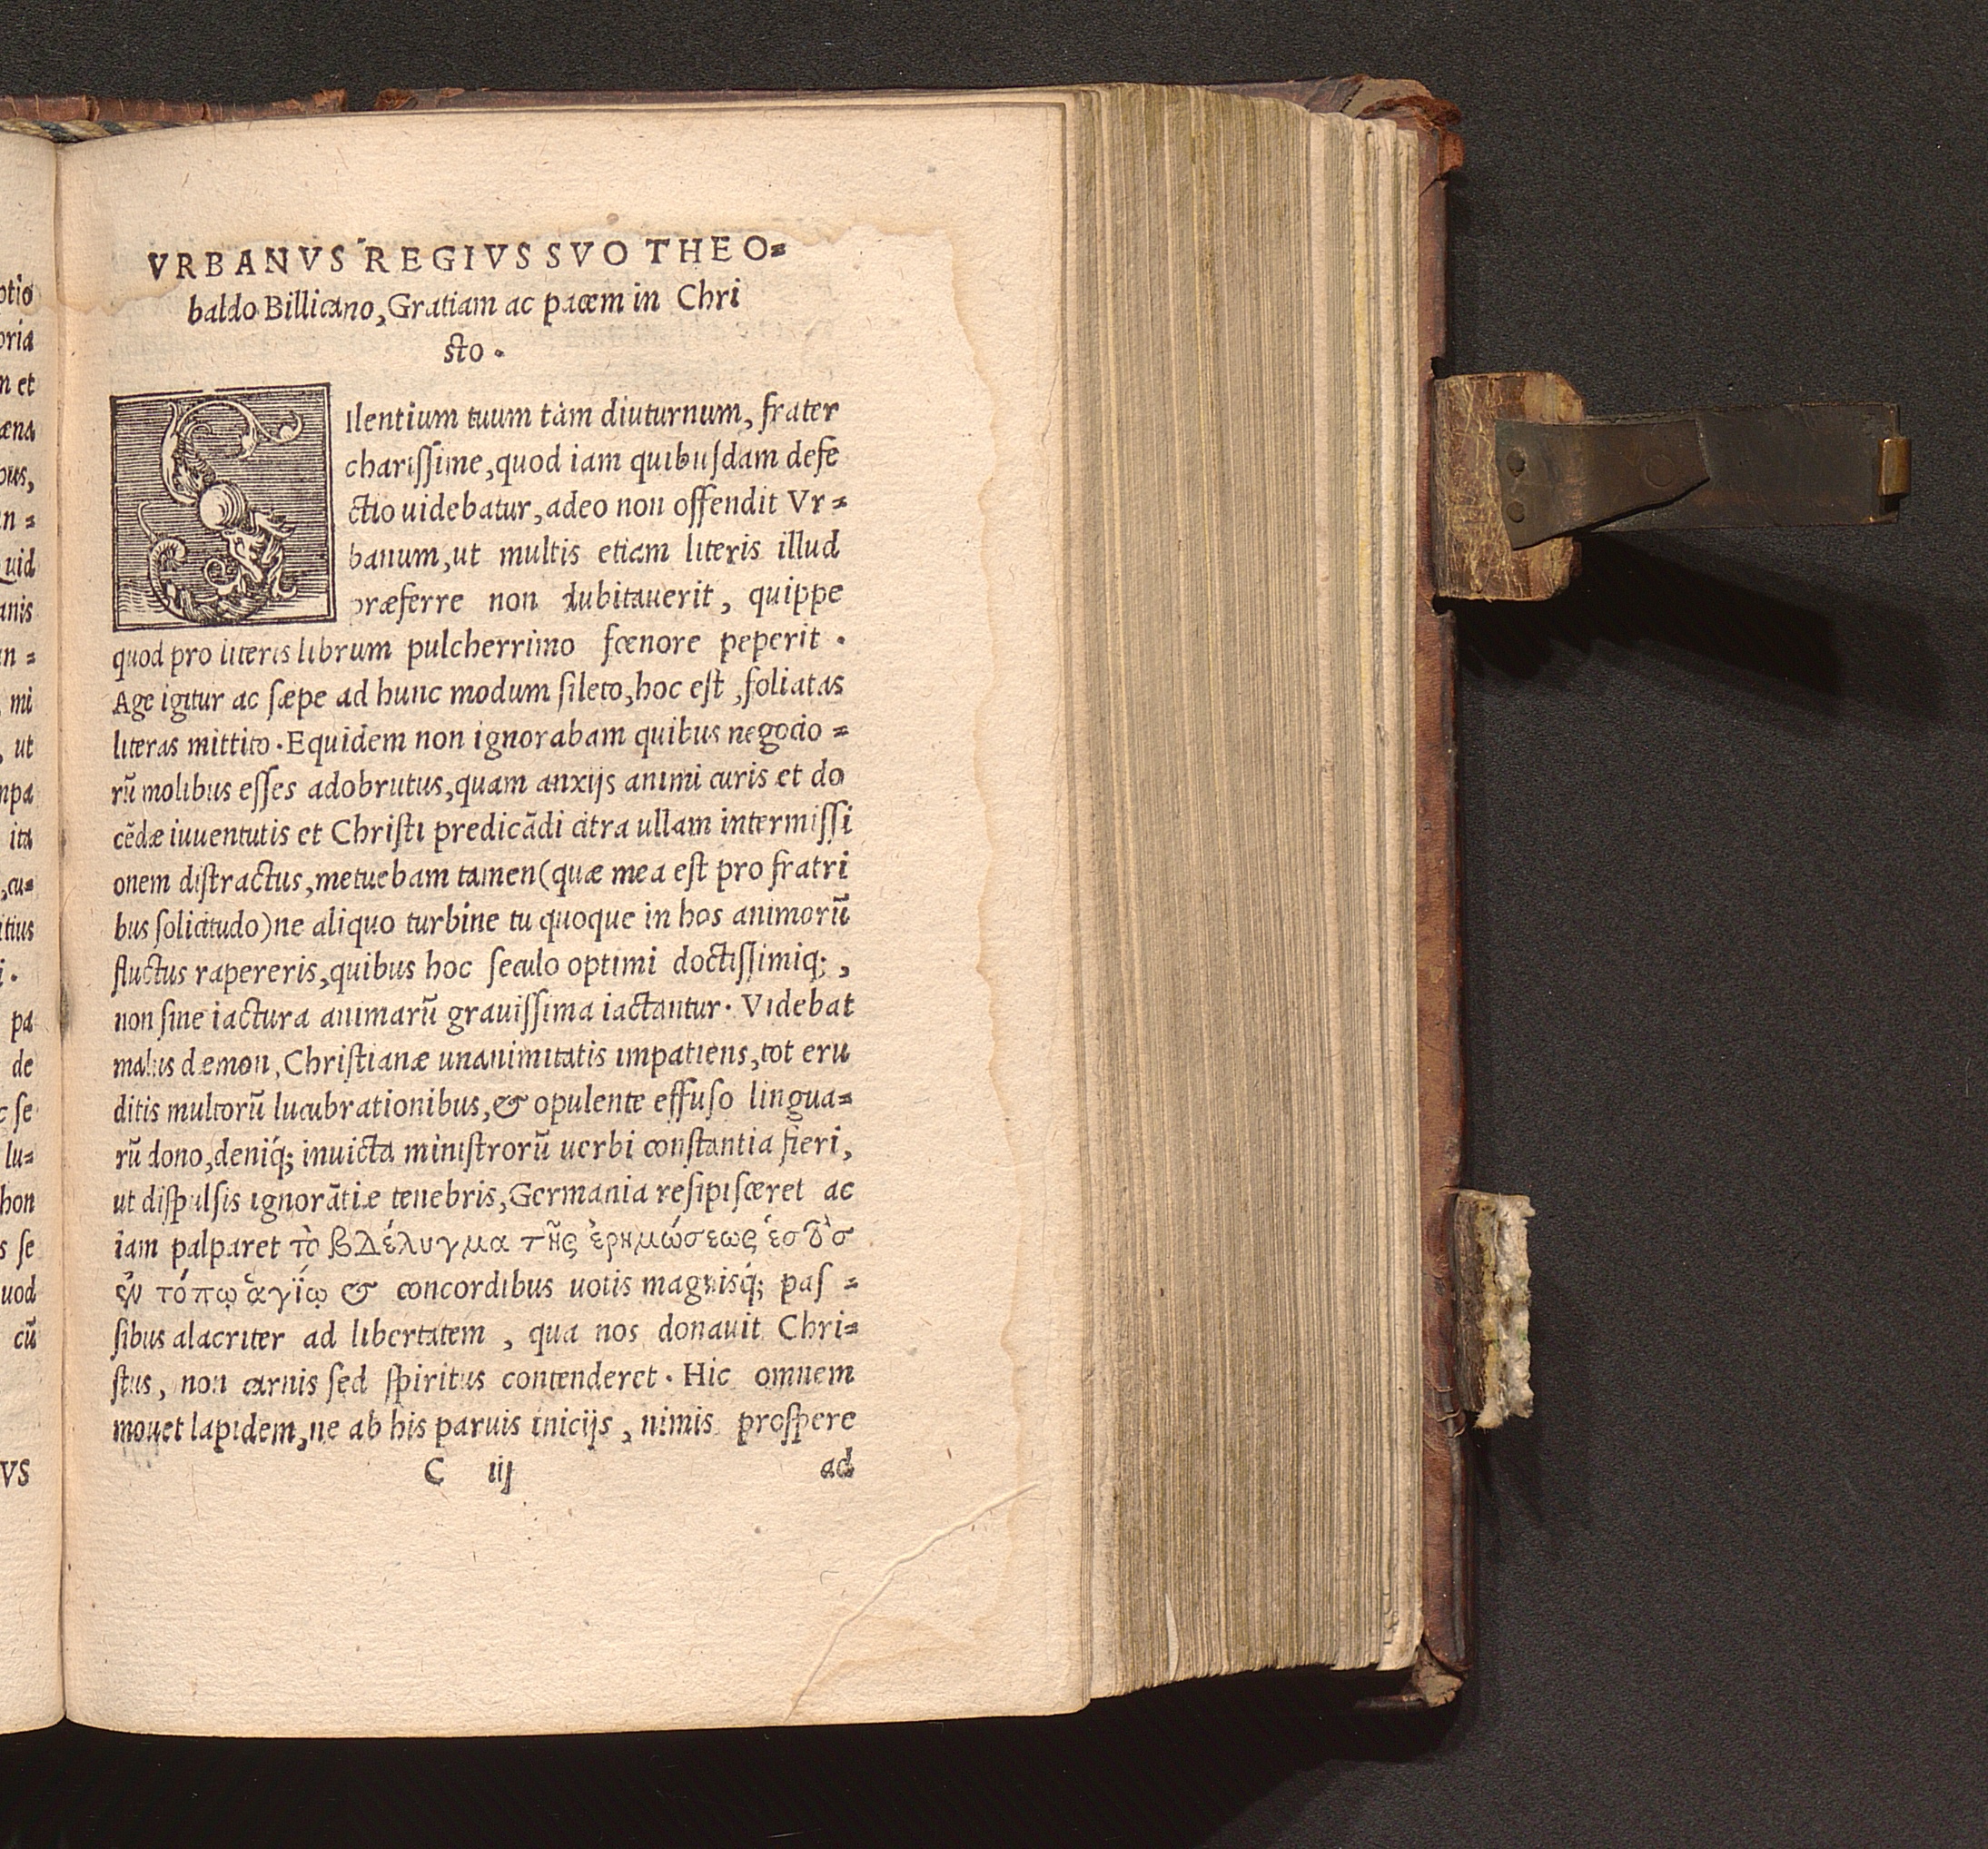 VRBANVS REGIVS SVO THEO=
baldo Billicano, Gratiam ac pacem in Chri
sto.
SIlentium tuum tàm diuturnum, frater
charissime, quod iam quibusdam defe
ctio uidebatur, adeo non offendit Vr=
banum, ut multis etiam literis illud
præferre non dubitauerit, quippe
quod pro literis librum pulcherrimo fœnore peperit.
Age igitur ac sæpe ad hunc modum sileto, hoc est, foliatas
literas mittito. Equidem non ignorabam quibus negocio=
rū molibus esses adobrutus, quam anxijs animi curis et do
cēdæ iuuentutis et Christi predicādi citra ullam intermissi
onem distractus, metuebam tamen (quæ mea est pro fratri
bus solicitudo) ne aliquo turbine tu quoque in hos animorū
fluctus rapereris, quibus hoc seculo optimi doctissimiq;,
non sine iactura animarū grauissima iactantur. Videbat
malus dæmon, Christianæ unanimitatis impatiens, tot eru
ditis multorū lucubrationibus, & opulente effuso lingua=
rū dono, deniq́; inuicta ministrorū uerbi constantia fieri,
ut dispulsis ignorātiæ tenebris, Germania resipisceret ac
iam palparet τὸ βδέλυγμα τῆς ἐρημώσεως ἑστὸσ
ἐν τόπῳ ἁγίῳ & concordibus uotis magnisq́; pas=
sibus alacriter ad libertatem, qua nos donauit Chri=
stus, non carnis sed spiritus contenderet. Hic omnem
mouet lapidem, ne ab his paruis inicijs, nimis prospere
C iij ad
otio
oria
n et
æna
ous,
n=
uid
anis
n=
mi
, ut
npa
ita
, cu=
itius
i.
pa
de
c se
lu=
hon
s se
uod
cū
VS